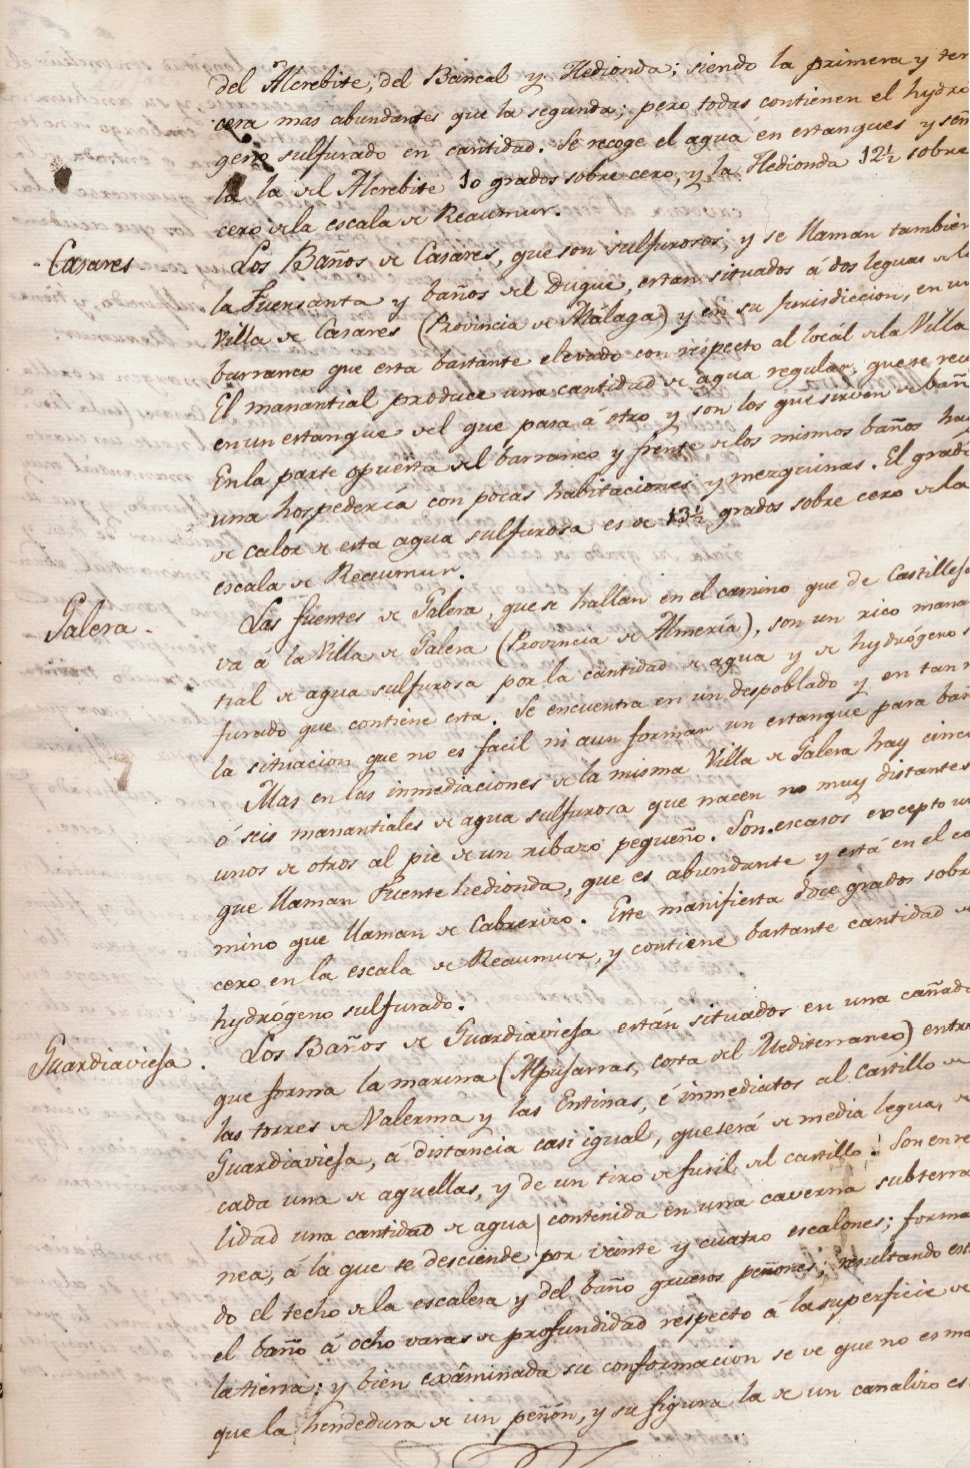 del Alcrebite, del Bancal y Hedionda; siendo la primera y ter
cera mas abundantes que la segunda; pero todas contienen el hydro
geno sulfurado en cantidad. Se recoge el agua en estanques y señ
la la del Alcrebite 10 grados sobre cero, y la Hedionda 12½ sobre
cero de la escala de Reaumur.
Casares
Los Baños de Casares, que son sulfurosos, y se llaman tambien
la Fuensanta y baños del Duque, estan situados á dos leguas de la
Villa de Casares (Provincia de Málaga) y en su Jurisdiccion, en un
barranco que esta bastante elevado con respecto al locál de la Villa
El manantial produce una cantidad de agua regular, que se reu
en un estanque del que pasa á otro y son los que sirven de bañ
En la parte opuesta del barranco y frente de los mismos baños hay
una hospedería con pocas habitaciones y mezquinas. El grado
de calor de esta agua sulfurosa es de 13½ grados sobre cero de la
escala de Reaumur.
Galera.
Las fuentes de Galera, que se hallan en el camino que de Castilleja
vá á la Villa de Galera (Provincia de Almería), son un rico manan
tial de agua sulfurosa por la cantidad de agua y de hydrógeno s
furado que contiene esta. Se encuentra en un despoblado y en tan m
la situacion que no es facil ni aun formar un estanque para bañ
Mas en las inmediaciones de la misma Villa de Galera hay cinco
ó seis manantiales de agua sulfurosa que nacen no muy distantes
unos de otros al pie de un ribazo pequeño. Son escasos excepto un
que llaman Fuente hedionda, que es abundante y está en el ca
mino que llaman de Cabrerizo. Este manifiesta doce grados sobre
cero en la escala de Reaumur, y contiene bastante cantidad de
hydrógeno sulfurado.
Guardiavieja.
Los Baños de Guardiavieja están situados en una cañada
que forma la marina (Alpujarras, costa del Mediterraneo) entre
las torres de Balerma y las Entinas, é inmediatos al Castillo de
Guardiavieja, á distancia casi igual, que será de media legua, de
cada una de aquellas, y de un tiro de fusil del castillo. Son en rea
lidad una cantidad de agua contenida en una caverna subterra
nea, á la que se desciende por veinte y cuatro escalones; forman
do el techo de la escalera y del baño gruesos peñones; resultando est
el baño á ocho varas de profundidad respecto á la superficie de
la tierra; y bien exâminada su conformacion se ve que no es ma
que la hendedura de un peñón, y su figura la de un canalizo es